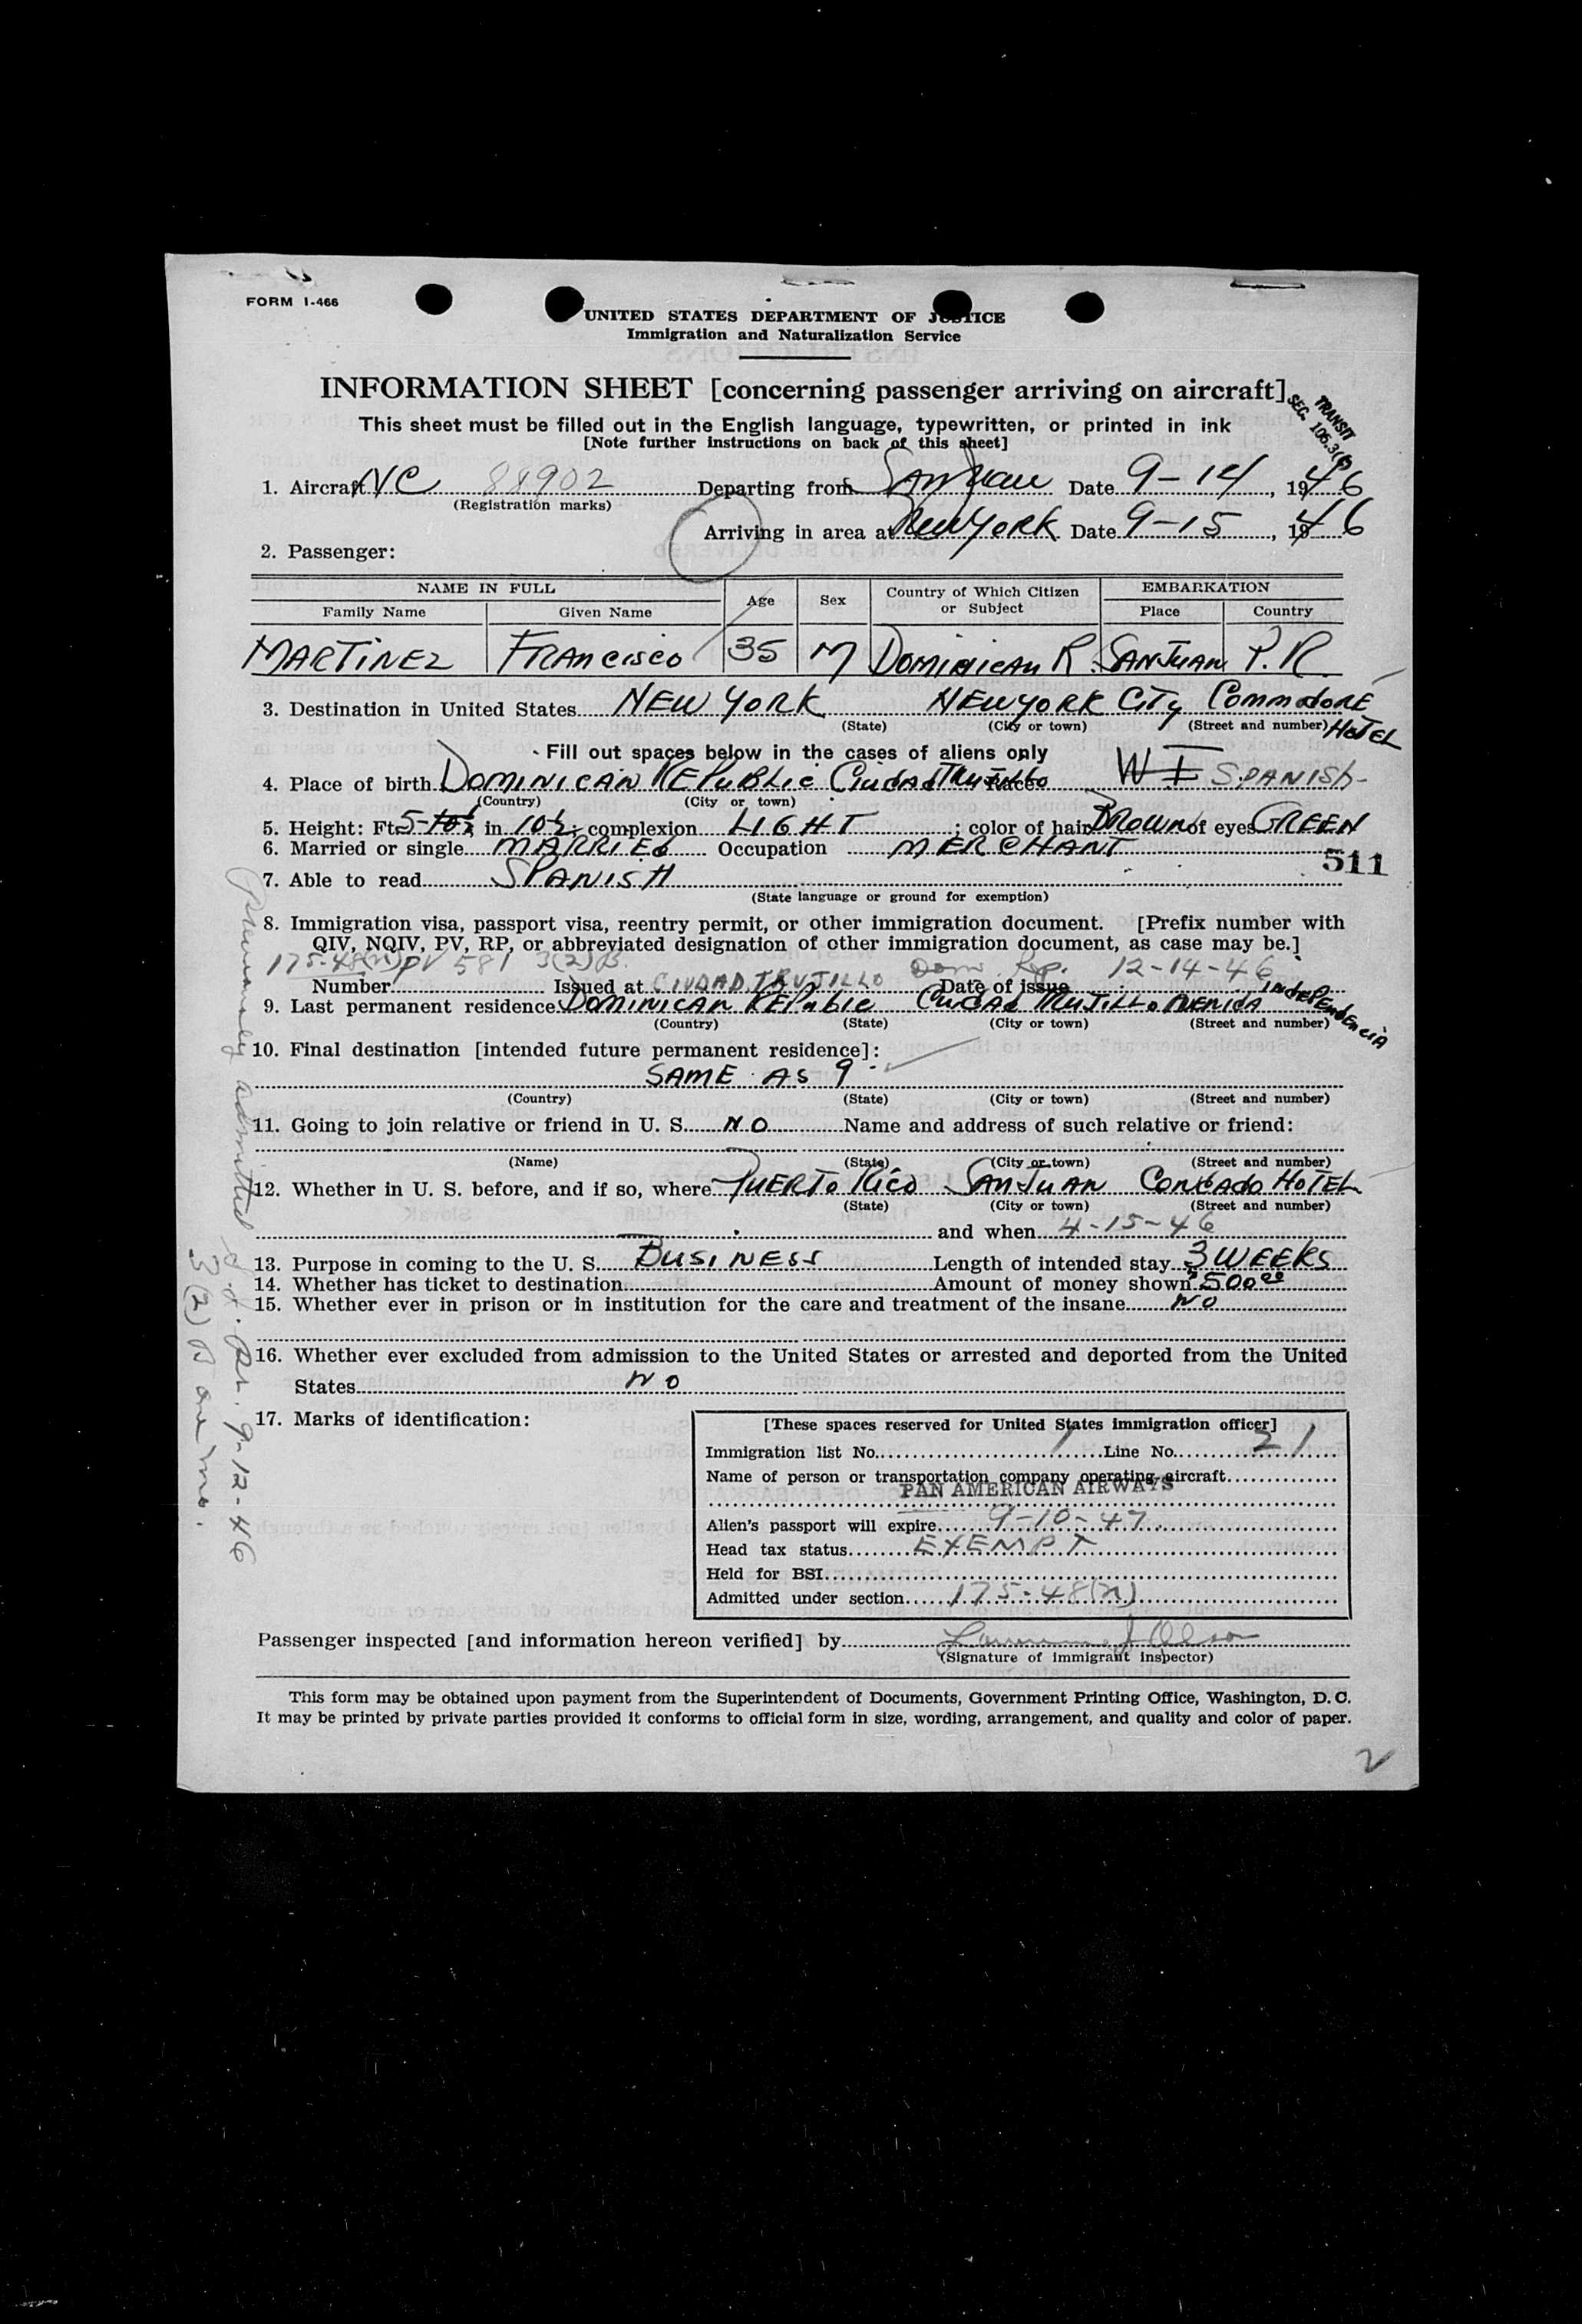 FORM I-466
UNITED STATES DEPARTMENT OF JUSTICE
Immigration and Naturalization Service
INFORMATION SHEET [concerning passenger arriving on aircraft]
TRANSIT
SEC. 106.3(b)
This sheet must be filled out in the English language, typewritten, or printed in ink
[Note further instructions on back of this sheet]
1. Aircraft NC 88902 Departing from San Juan Date 9-14, 1946
(Registration marks)
Arriving in area at New York Date 9-15, 1946
2. Passenger:
NAME IN FULL Age Sex Country of Which Citizen or Subject EMBARKATION
Family Name Given Name Place Country
MARTINEZ FRANCISCO 35 M DOMINICAN R. SAN JUAN P.R.
3. Destination in United States NEW YORK NEW YORK CITY COMMODORE HOTEL
(State) (City or town) (Street and number)
Fill out spaces below in the cases of aliens only
4. Place of birth DOMINICAN REPUBLIC CIUDAD TRUJILLO Race W I SPANISH
(Country) (City or town)
5. Height: Ft. 5-10½ in 10½; complexion LIGHT; color of hair BROWN of eyes GREEN
6. Married or single MARRIED Occupation MERCHANT
511
7. Able to read SPANISH
(State language or ground for exemption)
8. Immigration visa, passport visa, reentry permit, or other immigration document. [Prefix number with
QIV, NQIV, PV, RP, or abbreviated designation of other immigration document, as case may be.]
175-48(n) PV 581 3(2)B. Dom. Rep. 12-14-46
Number Issued at CIUDAD TRUJILLO Date of issue
9. Last permanent residence DOMINICAN REPUBLIC CIUDAD TRUJILLO AVENIDA INDEPENDENCIA
(Country) (State) (City or town) (Street and number)
10. Final destination [intended future permanent residece]:
SAME AS 9
(Country) (State) (City or town) (Street and number)
11. Going to join relative or friend in U. S. NO Name and address of such relative or friend:
(Name) (State) (City or town) (Street and number)
12. Whether in U. S. before, and if so, where PUERTO RICO SAN JUAN CONDADO HOTEL
(State) (City or town) (Street and number)
and when 4-15-46
13. Purpose in coming to the U. S. BUSINESS Length of intended stay 3 WEEKS
14. Whether has ticket to destination Amount of money shown $500.00
15. Whether ever in prison or in institution for the care and treatment of the insane NO
16. Whether ever excluded from admission to the United States or arrested and deported from the United
States NO
17. Marks of identification:
[These spaces reserved for United States immigration officer]
Immigration list No. 1 Line No. 21
Name of person or transportation company operating aircraft
PAN AMERICAN AIRWAYS
Alien's passport will expire 9-10-47
Head tax status EXEMPT
Held for BSI
Admitted under section 175-48(n)
Passenger inspected [and information hereon verified] by
(Signature of immigrant inspector)
This form may be obtained upon payment from the Superintendent of Documents, Government Printing Office, Washington, D. C.
It may be printed by private parties provided it conforms to official form in size, wording, arrangement, and quality and color of paper.
2
Previously admitted P.R. 9-12-46
3(2)B one mo.